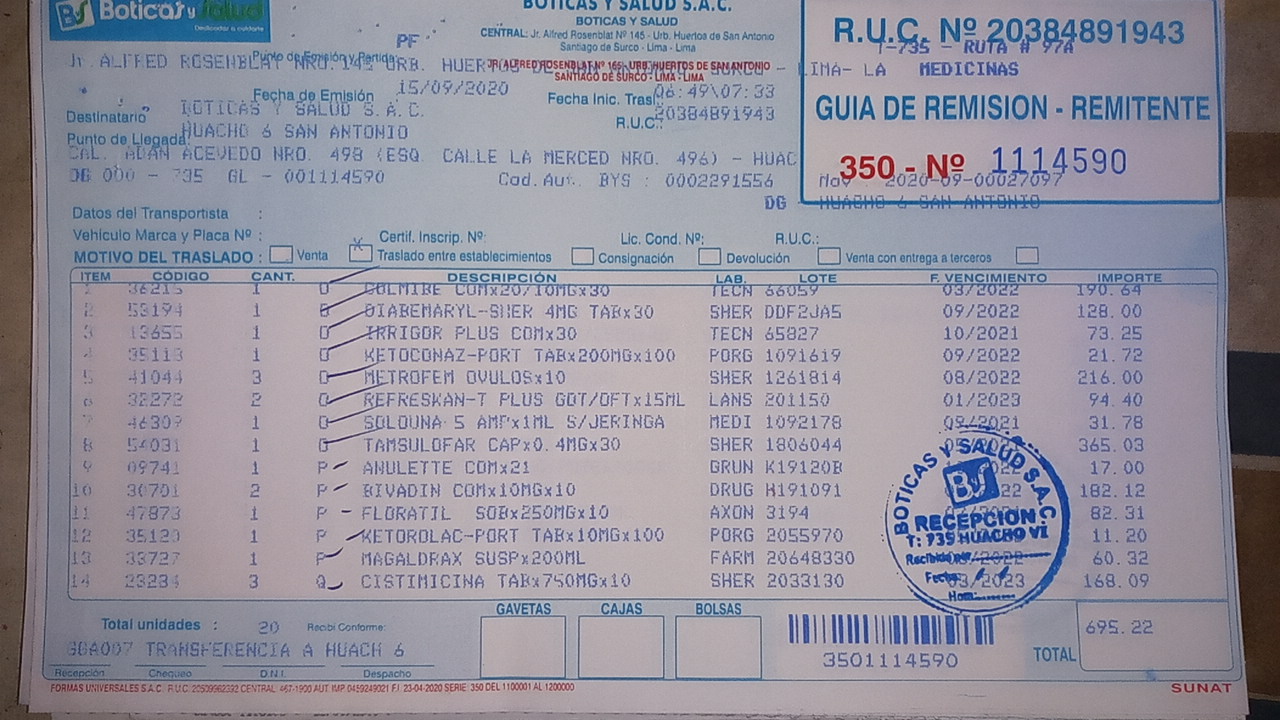 Boticas y Salud
BOTICAS Y SALUD S.A.C.
BOTICAS Y SALUD
CENTRAL: Jr. Alfred Rosenblat Nº 145 - Urb. Huertos de San Antonio
Santiago de Surco - Lima - Lima
R.U.C. Nº 20384891943
T-735 - RUTA # 97A
PF
Punto de Emisión y Partida
Jr. ALFRED ROSENBLAT NRO. 145 URB. HUERTOS DE SAN ANTONIO SURCO - LIMA- LA MEDICINAS
SANTIAGO DE SURCO - LIMA - LIMA
Fecha de Emisión 15/09/2020 Fecha Inic. Tras 06:49\07:33
GUIA DE REMISION - REMITENTE
Destinatario BOTICAS Y SALUD S.A.C. R.U.C.: 20384891943
Punto de Llegada: HUACHO 6 SAN ANTONIO
CAL. ADAN ACEVEDO NRO. 498 (ESQ. CALLE LA MERCED NRO. 496) - HUAC
350 - Nº 1114590
DG 000 - 735 GL - 001114590 Cod.Aut. BYS : 0002291556 2020-09-00027097
DG - HUACHO 6 SAN ANTONIO
Datos del Transportista :
Vehículo Marca y Placa Nº : Certif. Inscrip. Nº: Lic. Cond. Nº: R.U.C.:
MOTIVO DEL TRASLADO : Venta X Traslado entre establecimientos Consignación Devolución Venta con entrega a terceros
ITEM CÓDIGO CANT. DESCRIPCIÓN LAB. LOTE F. VENCIMIENTO IMPORTE
1 36215 1 COLMIBE COMx20/10MGx30 TECN 66059 03/2022 190.64
2 53194 1 DIABEMARYL-SHER 4MG TABx30 SHER DDF2JA5 09/2022 128.00
3 13655 1 IRRIGOR PLUS COMx30 TECN 65827 10/2021 73.25
4 35113 1 KETOCONAZ-PORT TABx200MGx100 PORG 1091619 09/2022 21.72
5 41044 3 METROFEM OVULOSx10 SHER 1261814 08/2022 216.00
6 32272 2 REFRESKAN-T PLUS GOT/OFTx15ML LANS 201150 01/2023 94.40
7 46309 1 SOLOUNA-5 AMPx1ML S/JERINGA MEDI 1092178 09/2021 31.78
8 54031 1 TAMSULOFAR CAPx0.4MGx30 SHER 1806044 365.03
9 09741 1 P ANULETTE COMx21 GRUN K19120B 17.00
10 30701 2 P BIVADIN COMx10MGx10 DRUG H191091 182.12
11 47873 1 P FLORATIL SOBx250MGx10 AXON 3194 82.31
12 35123 1 P KETOROLAC-PORT TABx10MGx100 PORG 2055970 11.20
13 33727 1 P MAGALDRAX SUSPx200ML FARM 20648330 60.32
14 23234 3 CISTIMICINA TABx750MGx10 SHER 2033130 03/2023 168.09
BOTICAS Y SALUD S.A.C
BS
RECEPCION
T: 735 HUACHO VI
Recibido por
Fecha:
Hora:
GAVETAS CAJAS BOLSAS
Total unidades : 20 Recibí Conforme:
GGA007 TRANSFERENCIA A HUACH 6
3501114590
TOTAL 695.22
Recepción Chequeo D.N.I. Despacho
FORMAS UNIVERSALES S.A.C. R.U.C. 20509962392 CENTRAL: 467-1900 AUT. IMP. 0459249021 F.I. 23-04-2020 SERIE: 350 DEL 1100001 AL 1200000
SUNAT